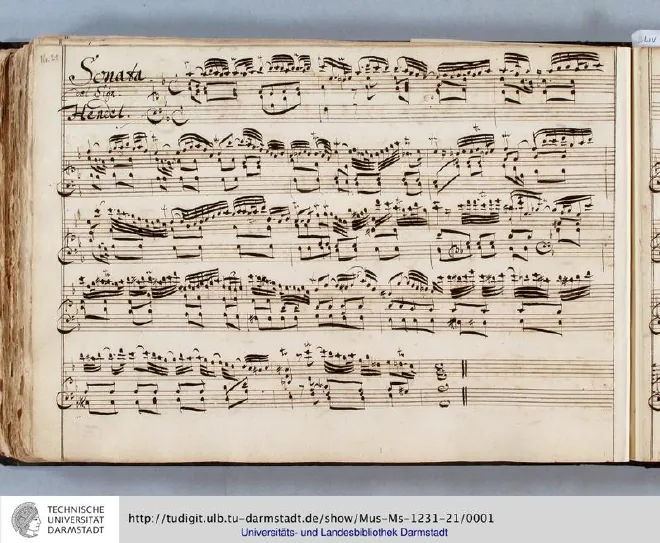 No. 21
LIV
Sonata
del Sigr
Hendel.
TECHNISCHE
UNIVERSITÄT
DARMSTADT
http://tudigit.ulb.tu-darmstadt.de/show/Mus-Ms-1231-21/0001
Universitäts- und Landesbibliothek Darmstadt